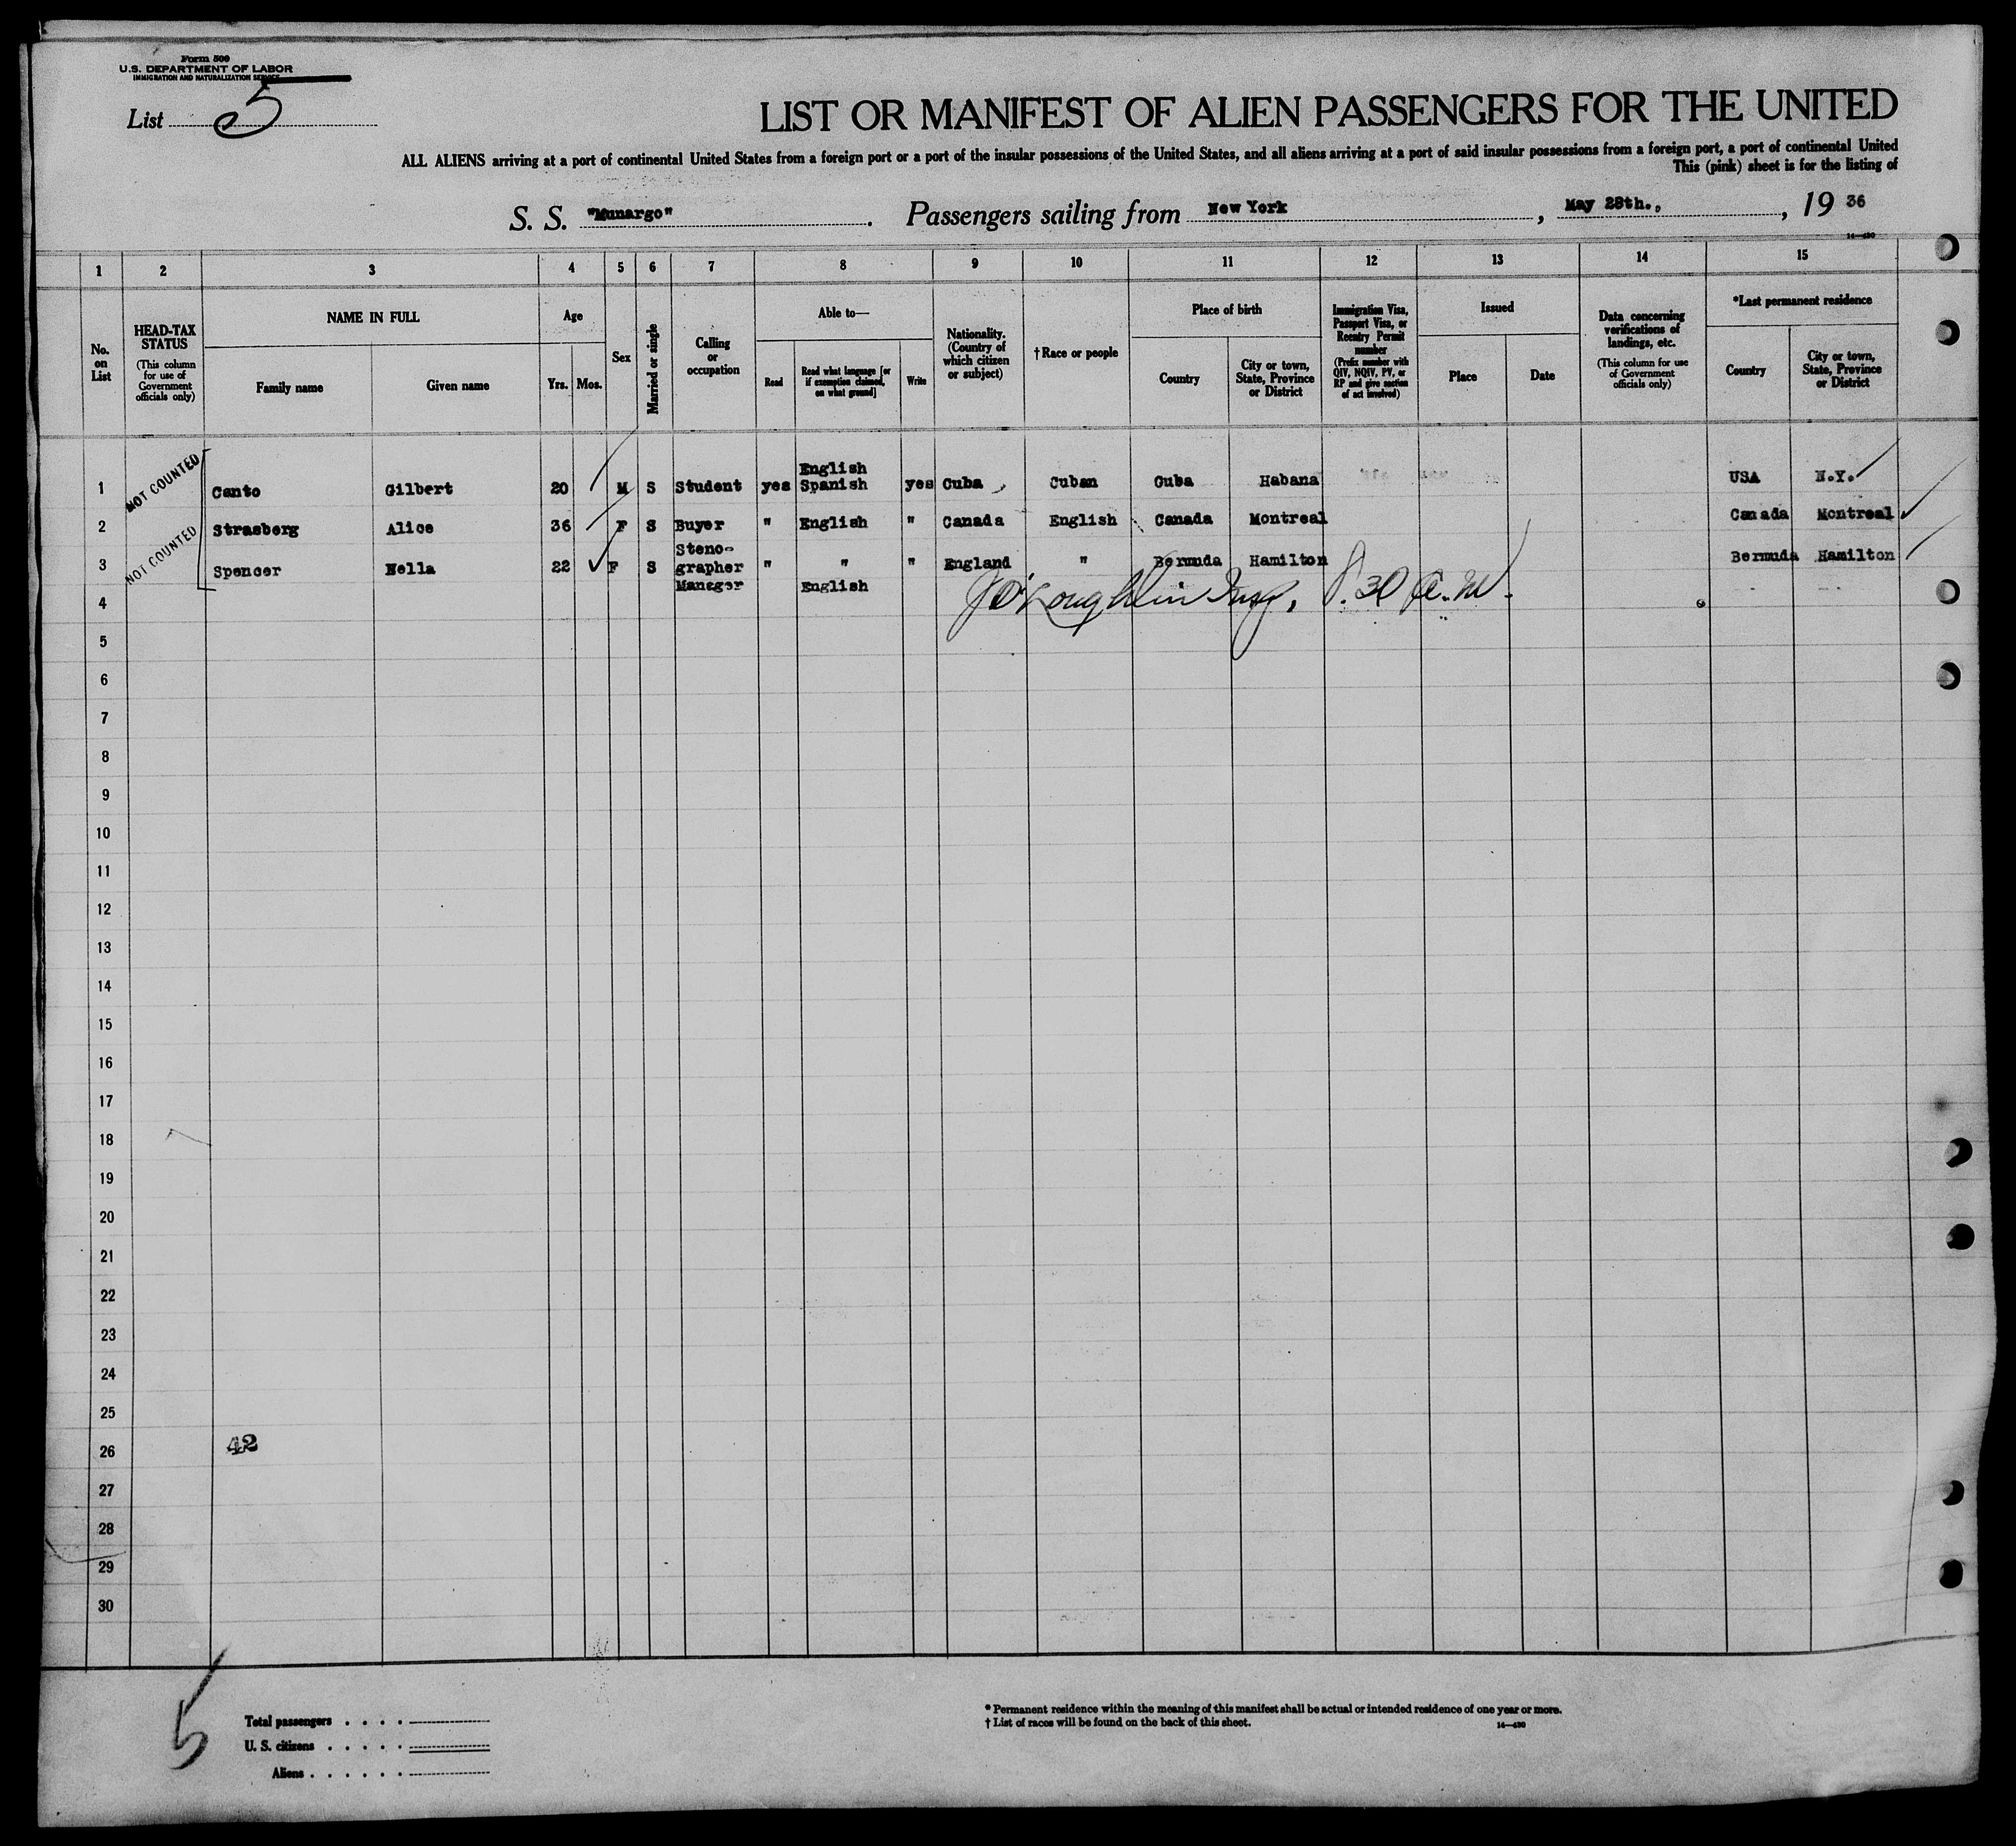 Form 500
U.S. DEPARTMENT OF LABOR
IMMIGRATION AND NATURALIZATION SERVICE
List 5
LIST OR MANIFEST OF ALIEN PASSENGERS FOR THE UNITED
ALL ALIENS arriving at a port of continental United States from a foreign port or a port of the insular possessions of the United States, and all aliens arriving at a port of said insular possessions from a foreign port, a port of continental United
This (pink) sheet is for the listing of
S. S. "Munargo". Passengers sailing from New York, May 28th., , 19 36
14—430
1 2 3 4 5 6 7 8 9 10 11 12 13 14 15
No. on List
HEAD-TAX STATUS (This column for use of Government officials only)
NAME IN FULL Family name Given name
Age Yrs. Mos.
Sex
Married or single
Calling or occupation
Able to— Read Read what language [or if exemption claimed, on what ground] Write
Nationality. (Country of which citizen or subject)
† Race or people
Place of birth Country City or town, State, Province or District
Immigration Visa, Passport Visa, or Reentry Permit number (Prefix number with QIV, NQIV, PV, or RP and give section of act involved)
Issued Place Date
Data concerning verifications of landings, etc. (This column for use of Government officials only)
*Last permanent residence Country City or town, State, Province or District
NOT COUNTED
English
1 Canto Gilbert 20 M S Student yes Spanish yes Cuba Cuban Cuba Habana USA N.Y.
2 Strasberg Alice 36 F S Buyer " English " Canada English Canada Montreal Canada Montreal
NOT COUNTED
Steno-
3 Spencer Nella 22 F S grapher " " " England " Bermuda Hamilton Bermuda Hamilton
Manager English
4 J O'Loughlin Insp. 8.30 A.M.
5
6
7
8
9
10
11
12
13
14
15
16
17
18
19
20
21
22
23
24
25
26 42
27
28
29
30
5
Total passengers . . . .
U. S. citizens . . . . .
Aliens . . . . . .
* Permanent residence within the meaning of this manifest shall be actual or intended residence of one year or more.
† List of races will be found on the back of this sheet. 14—430